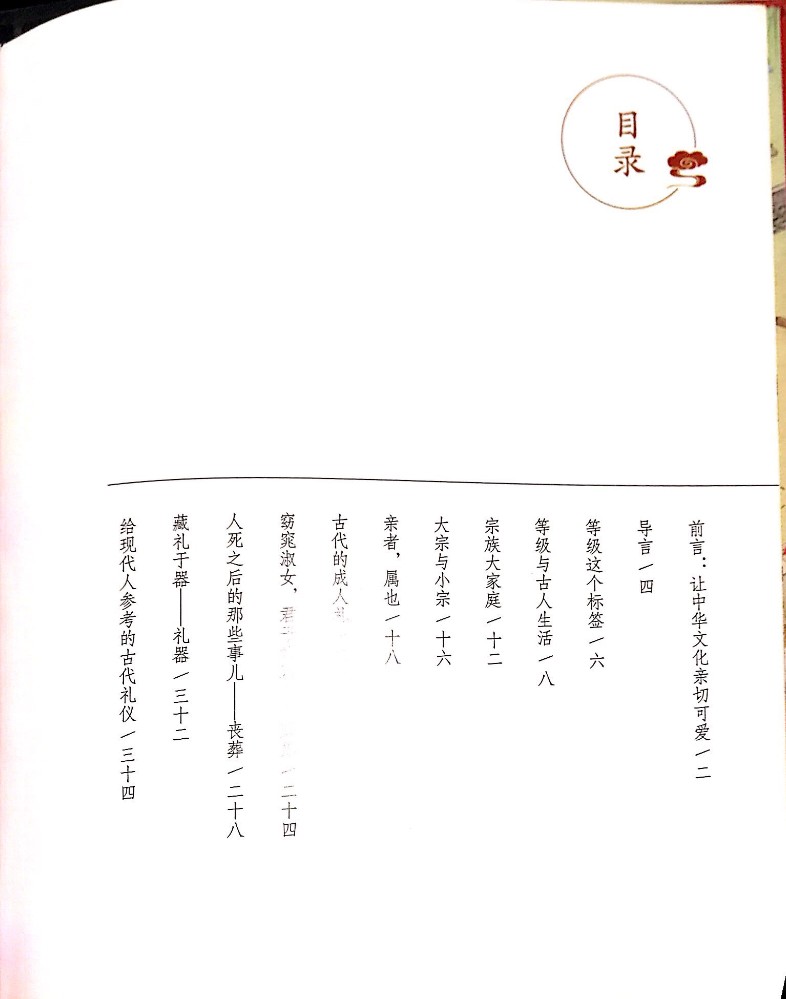 目录
前言：让中华文化亲切可爱/二
导言/四
等级这个标签/六
等级与古人生活/八
宗族大家庭/十二
大宗与小宗/十六
亲者，属也/十八
古代的成人礼
窈窕淑女，君子 /二十四
人死之后的那些事儿——丧葬/二十八
藏礼于器——礼器/三十二
给现代人参考的古代礼仪/三十四